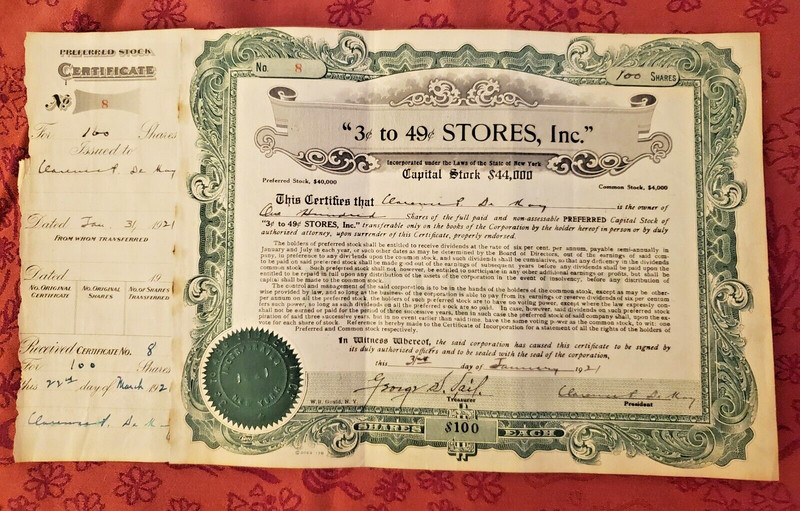 PREFERRED STOCK
CERTIFICATE
No 8
For 100 Shares
Issued to
Clarence P. De May
Dated Jan. 31, 1921
FROM WHOM TRANSFERRED
Dated 19
NO. ORIGINAL CERTIFICATE NO. ORIGINAL SHARES NO. OF SHARES TRANSFERRED
Received CERTIFICATE NO. 8
For 100 Shares
this 22nd day of March 192
Clarence P. De May
No. 8
100 SHARES
"3¢ to 49¢ STORES, Inc."
Incorporated under the Laws of the State of New York
Capital Stock $44,000
Preferred Stock, $40,000
Common Stock, $4,000
This Certifies that Clarence P. De May is the owner of
One Hundred Shares of the full paid and non-assessable PREFERRED Capital Stock of
"3¢ to 49¢ STORES, Inc." transferable only on the books of the Corporation by the holder hereof in person or by duly
authorized attorney, upon surrender of this Certificate, properly endorsed.
The holders of preferred stock shall be entitled to receive dividends at the rate of six per cent. per annum, payable semi-annually in
January and July in each year, or such other dates as may be determined by the Board of Directors, out of the earnings of said com-
pany, in preference to any dividends upon the common stock, and such dividends shall be cumulative, so that any deficiency in the dividends
to be paid on said preferred stock shall be made good out of the earnings of subsequent years before any dividends shall be paid upon the
common stock. Such preferred stock shall not, however, be entitled to participate in any other additional earnings or profits, but shall be
entitled to be paid in full upon any distribution of the assets of the corporation in the event of insolvency, before any distribution of
capital shall be made to the common stock.
The control and management of the said corporation is to be in the hands of the holders of the common stock, except as may be other-
wise provided by law, and so long as the business of the corporation is able to pay from its earnings or reserve dividends of six per centum
per annum on all the preferred stock the holders of such preferred stock are to have no voting power, except where the law expressly con-
fers such power, so long as such dividends on all the preferred stock are so paid. In case, however, said dividends on such preferred stock
shall not be earned or paid for the period of three successive years, then in such case the preferred stock of said company shall, upon the ex-
piration of said three successive years, but in no event earlier than said time, have the same voting power as the common stock, to wit: one
vote for each share of stock. Reference is hereby made to the Certificate of Incorporation for a statement of all the rights of the holders of
Preferred and Common stock respectively.
In Witness Whereof, the said corporation has caused this certificate to be signed by
its duly authorized officers and to be sealed with the seal of the corporation,
this 31st day of January 1921
George S.
Clarence P. De May
Treasurer
President
W.R. Gould, N.Y.
SHARES $100 EACH